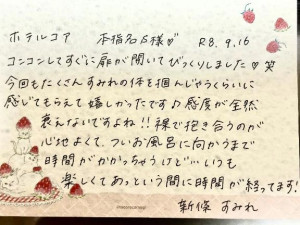 ホテルコア 本指名S様♡ R8.9.16
コンコンしてすぐに扉が開いてびっくりしました♡笑
今回もたくさんすみれの体を掴んじゃうくらいに
感じてもらえて嬉しかったです♪感度が全然
衰えないですよね!!裸で抱き合うのが
心地よくて、ついお風呂に向かうまで
時間がかかっちゃうけど…いつも
楽しくてあっという間に時間が経ってます!
新條 すみれ